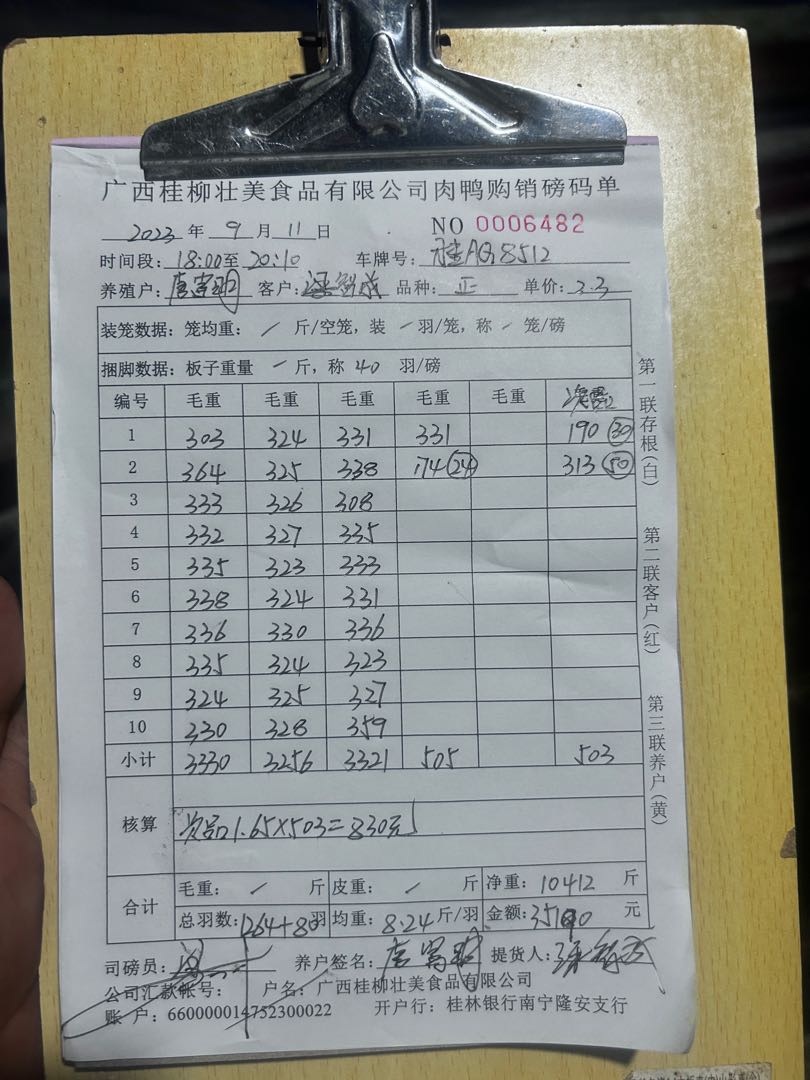 广西桂柳壮美食品有限公司肉鸭购销磅码单
2023 年 9 月 11 日 NO 0006482
时间段: 18:00至 20:10 车牌号: 桂AQ8512
养殖户: 唐富明 客户: 品种: 正 单价: 3.3
装笼数据: 笼均重: / 斤/空笼, 装 / 羽/笼, 称 / 笼/磅
捆脚数据: 板子重量 / 斤, 称 40 羽/磅
编号 毛重 毛重 毛重 毛重 毛重
1 303 324 331 331 190 30
2 364 325 338 174 24 313 50
3 333 326 308
4 332 327 335
5 335 323 333
6 338 324 331
7 336 330 336
8 335 324 323
9 324 325 327
10 330 328 359
小计 3330 3256 3321 505 503
核算 次品1.65×503=830元
合计 毛重: / 斤 皮重: / 斤 净重: 10412 斤
总羽数: 1264+80 羽 均重: 8.24 斤/羽 金额: 35190 元
司磅员: 养户签名: 唐富明 提货人:
公司汇款帐号: 户名: 广西桂柳壮美食品有限公司
账 户: 660000014752300022 开户行: 桂林银行南宁隆安支行
第一联存根(白)
第二联客户(红)
第三联养户(黄)